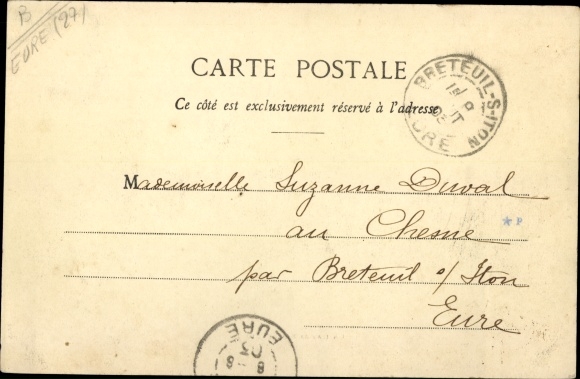 B
EURE (27)
CARTE POSTALE
BRETEUIL-S-ITON
EURE
Ce côté est exclusivement réservé à l'adresse
Mademoiselle Suzanne Duval
au Chesne
*P
par Breteuil s/ Iton
Eure
EURE
03
8